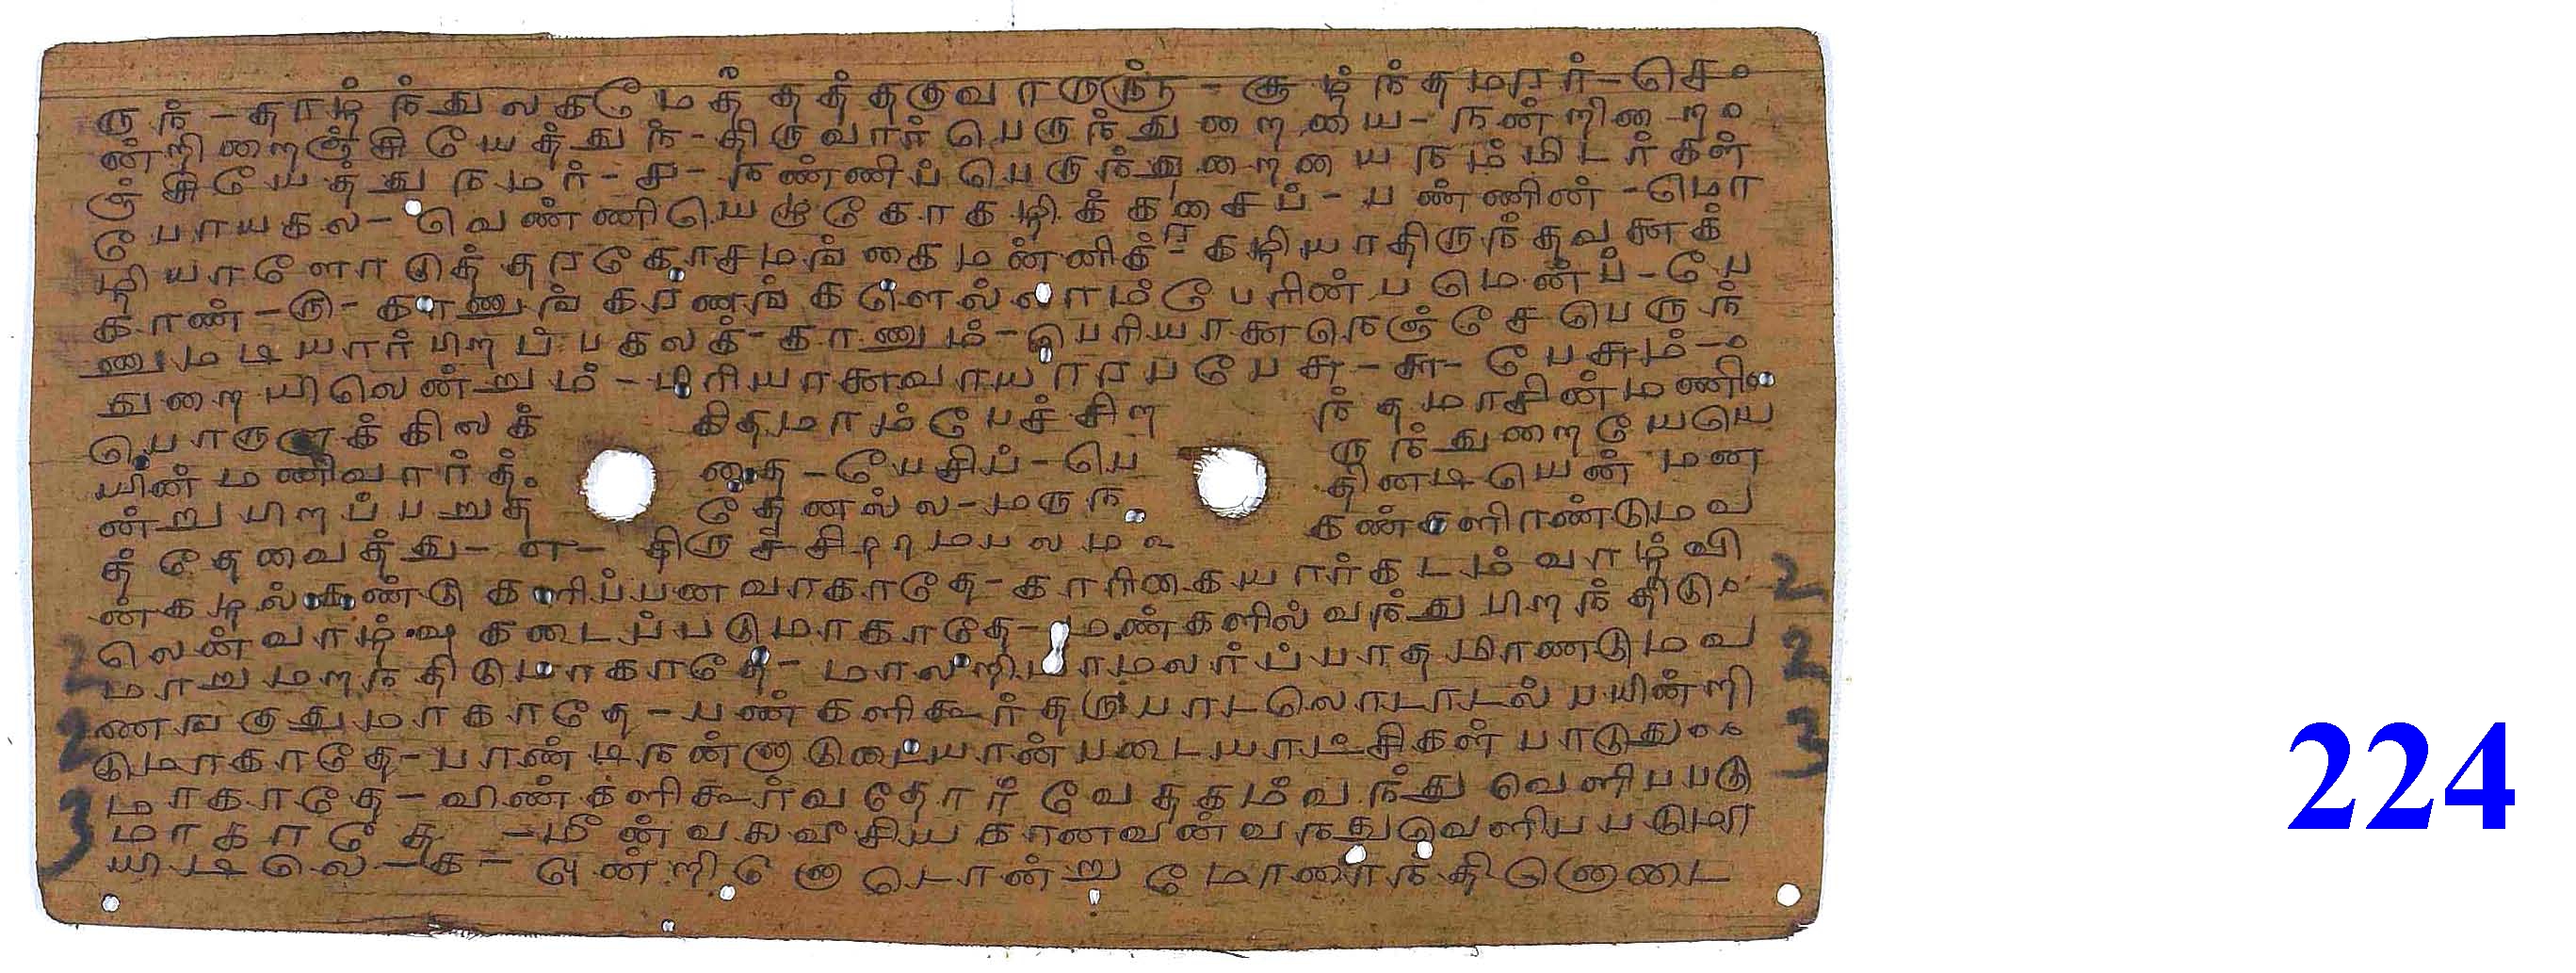 ருந்-தாழ்ந்துலகமேத்தத்தகுவாருருந்-சூழ்ந்தமரர்-செ
ன்றிறைஞ்சியேத்துந்-திருவார்பெருந்துறையை-நன்றிறை
ஞ்சியேத்துநமர்-ச-நண்ணிப்பெருந்துறையைநம்மிடர்கள்
போயகல-வெண்ணியெழுகோகழிக்கரசைப்-பண்ணின்-மொ
ழியாளோடுத்தரகோசமங்கைமன்னிக்-கழியாதிருந்தவனைக்
காண்-ரு-காணுங்கரணங்களெல்லாம்பேரின்பமென்ப்-பே
ணுமடியார்பிறப்பகலக்-காணும்-பெரியானைநெஞ்சேபெருந்
துறையிலென்றும்-பிரியானைவாயாரப்பேசு-சு-பேசும்-
பொருளுக்கிலக் கிதமாம்பேச்சிற ந்தமாசின்மணி
யின்மணிவார்த் தை-பேசிப்-பெ ருந்துறையேயெ
ன்றுபிறப்பறுத் தேனல்ல-மருந தினடியென்மன
த்தேவைத்து-எ- திருச்சிற்றமபலம கண்களிரண்டுமவ
ன்கழல்கண்டுகளிப்பனவாகாதே-காரிகையார்கடம்வாழ்வி
லென்வாழ்வுகடைப்படுமாகாதே-மண்களில்வந்துபிறந்திடு
மாறுமறந்திடுமாகாதே-மாலறியாமலர்ப்பாதமிரணடுமவ
ணஙகுதுமாகாதே-பண்களிகூர்தருபாடலொடாடல்பயின்றி
டுமாகாதே-பாண்டிநன்னாடுடையான்படையாட்சிகள்பாடுது
மாகாதே-விண்களிகூர்வதோர்வேதகம்வந்துவெளிபபடு
மாகாதே-மீன்வலைவீசியகானவன்வநதுவெளிபபடுமா
யிடிலெ-க-ஒன்றினோடொன்றுமோரைந்தினொடை